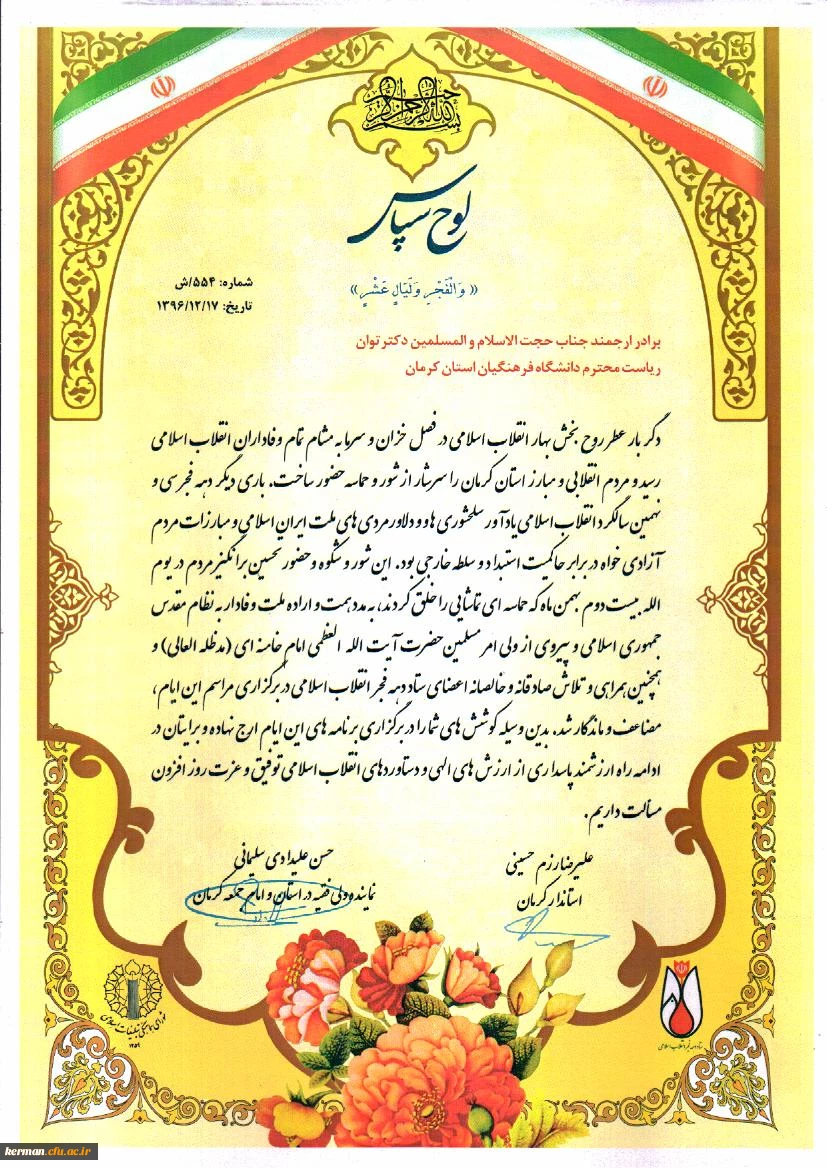 بسم الله الرحمن الرحیم
لوح سپاس
« وَالْفَجْرِ وَلَيَالٍ عَشْرٍ »
شماره: ۵۵۴/ش
تاریخ: ۱۳۹۶/۱۲/۱۷
برادر ارجمند جناب حجت الاسلام و المسلمین دکتر توان
ریاست محترم دانشگاه فرهنگیان استان کرمان
دگر بار عطر روح بخش بهار انقلاب اسلامی در فصل خزان و سرما به مشام تمام وفاداران انقلاب اسلامی
رسید و مردم انقلابی و مبارز استان کرمان را سرشار از شور و حماسه حضور ساخت. باری دیگر دهه فجر سی و
نهمین سالگرد انقلاب اسلامی یادآور سلحشوری ها و دلاورمردی های ملت ایران اسلامی و مبارزات مردم
آزادی خواه در برابر حاکمیت استبداد و سلطه خارجی بود. این شور و شکوه و حضور تحسین برانگیز مردم در یوم
الله بیست دوم بهمن ماه که حماسه ای تماشایی را خلق کردند، به مدد همت و اراده ملت وفادار به نظام مقدس
جمهوری اسلامی و پیروی از ولی امر مسلمین حضرت آیت الله العظمی امام خامنه ای (مدظله العالی) و
همچنین همراهی و تلاش صادقانه و خالصانه اعضای ستاد دهه فجر انقلاب اسلامی در برگزاری مراسم این ایام،
مضاعف و ماندگار شد. بدین وسیله کوشش های شما را در برگزاری برنامه های این ایام ارج نهاده و برایتان در
ادامه راه ارزشمند پاسداری از ارزش های الهی و دستاوردهای انقلاب اسلامی توفیق و عزت روز افزون
مسألت داریم.
علیرضا رزم حسینی
استاندار کرمان
حسن علیدادی سلیمانی
نماینده ولی فقیه در استان و امام جمعه کرمان
شورای هماهنگی تبلیغات اسلامی
۱۳۵۹
ستاد دهه فجر انقلاب اسلامی
kerman.cfu.ac.ir